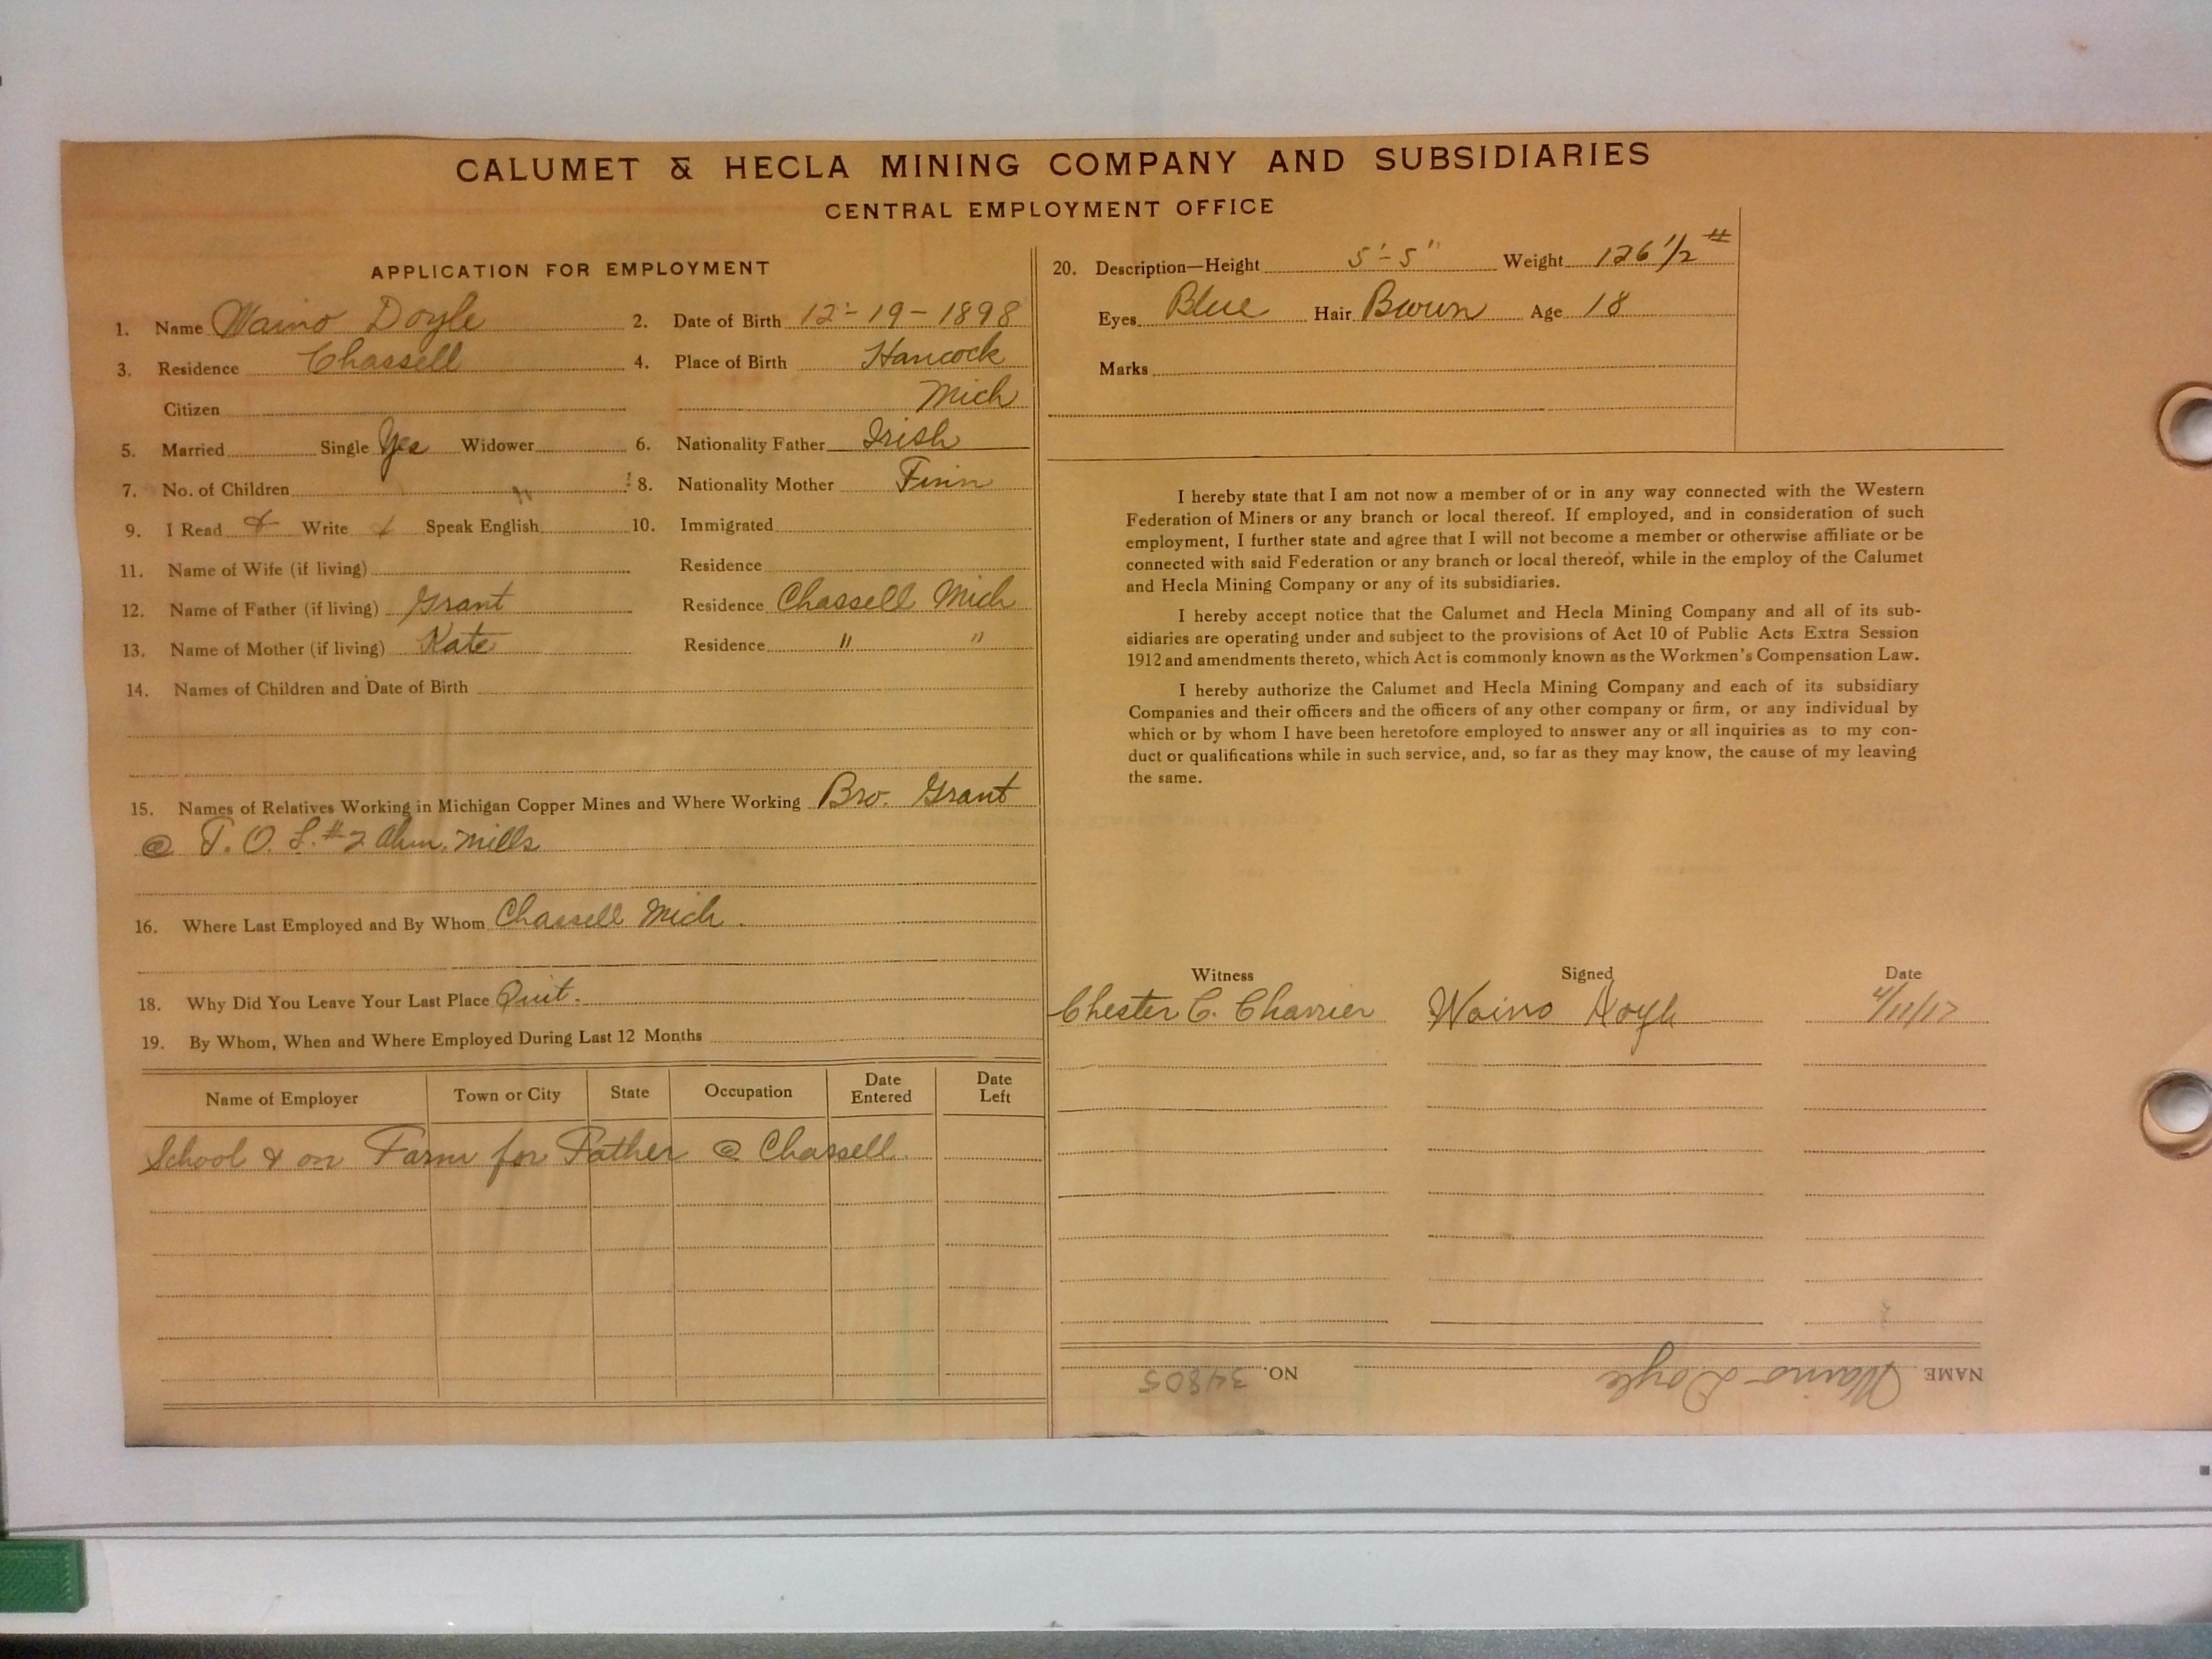 CALUMET & HECLA MINING COMPANY AND SUBSIDIARIES
CENTRAL EMPLOYMENT OFFICE
APPLICATION FOR EMPLOYMENT
1. Name Waino Doyle 2. Date of Birth 12-19-1898
3. Residence Chassell 4. Place of Birth Hancock
Citizen Mich
5. Married Single Yes Widower 6. Nationality Father Irish
7. No. of Children 8. Nationality Mother Finn
9. I Read & Write & Speak English 10. Immigrated
11. Name of Wife (if living) Residence
12. Name of Father (if living) Grant Residence Chassell Mich
13. Name of Mother (if living) Kate Residence " "
14. Names of Children and Date of Birth
15. Names of Relatives Working in Michigan Copper Mines and Where Working Bro. Grant
@ T. O. L. #2 Ahm. Mills
16. Where Last Employed and By Whom Chassell Mich.
18. Why Did You Leave Your Last Place Quit.
19. By Whom, When and Where Employed During Last 12 Months
Name of Employer Town or City State Occupation Date Entered Date Left
School & on Farm for Father @ Chassell.
20. Description—Height 5'-5" Weight 126 1/2 #
Eyes Blue Hair Brown Age 18
Marks
I hereby state that I am not now a member of or in any way connected with the Western
Federation of Miners or any branch or local thereof. If employed, and in consideration of such
employment, I further state and agree that I will not become a member or otherwise affiliate or be
connected with said Federation or any branch or local thereof, while in the employ of the Calumet
and Hecla Mining Company or any of its subsidiaries.
I hereby accept notice that the Calumet and Hecla Mining Company and all of its sub-
sidiaries are operating under and subject to the provisions of Act 10 of Public Acts Extra Session
1912 and amendments thereto, which Act is commonly known as the Workmen's Compensation Law.
I hereby authorize the Calumet and Hecla Mining Company and each of its subsidiary
Companies and their officers and the officers of any other company or firm, or any individual by
which or by whom I have been heretofore employed to answer any or all inquiries as to my con-
duct or qualifications while in such service, and, so far as they may know, the cause of my leaving
the same.
Witness Signed Date
Chester C. Charrier Waino Doyle 4/11/17
NAME Waino Doyle NO. 34805